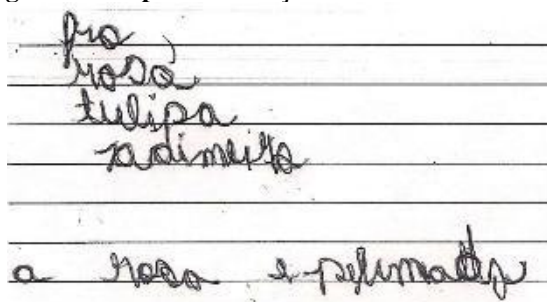 fro
rosa
tulipa
radimeira
a rosa e pefumada